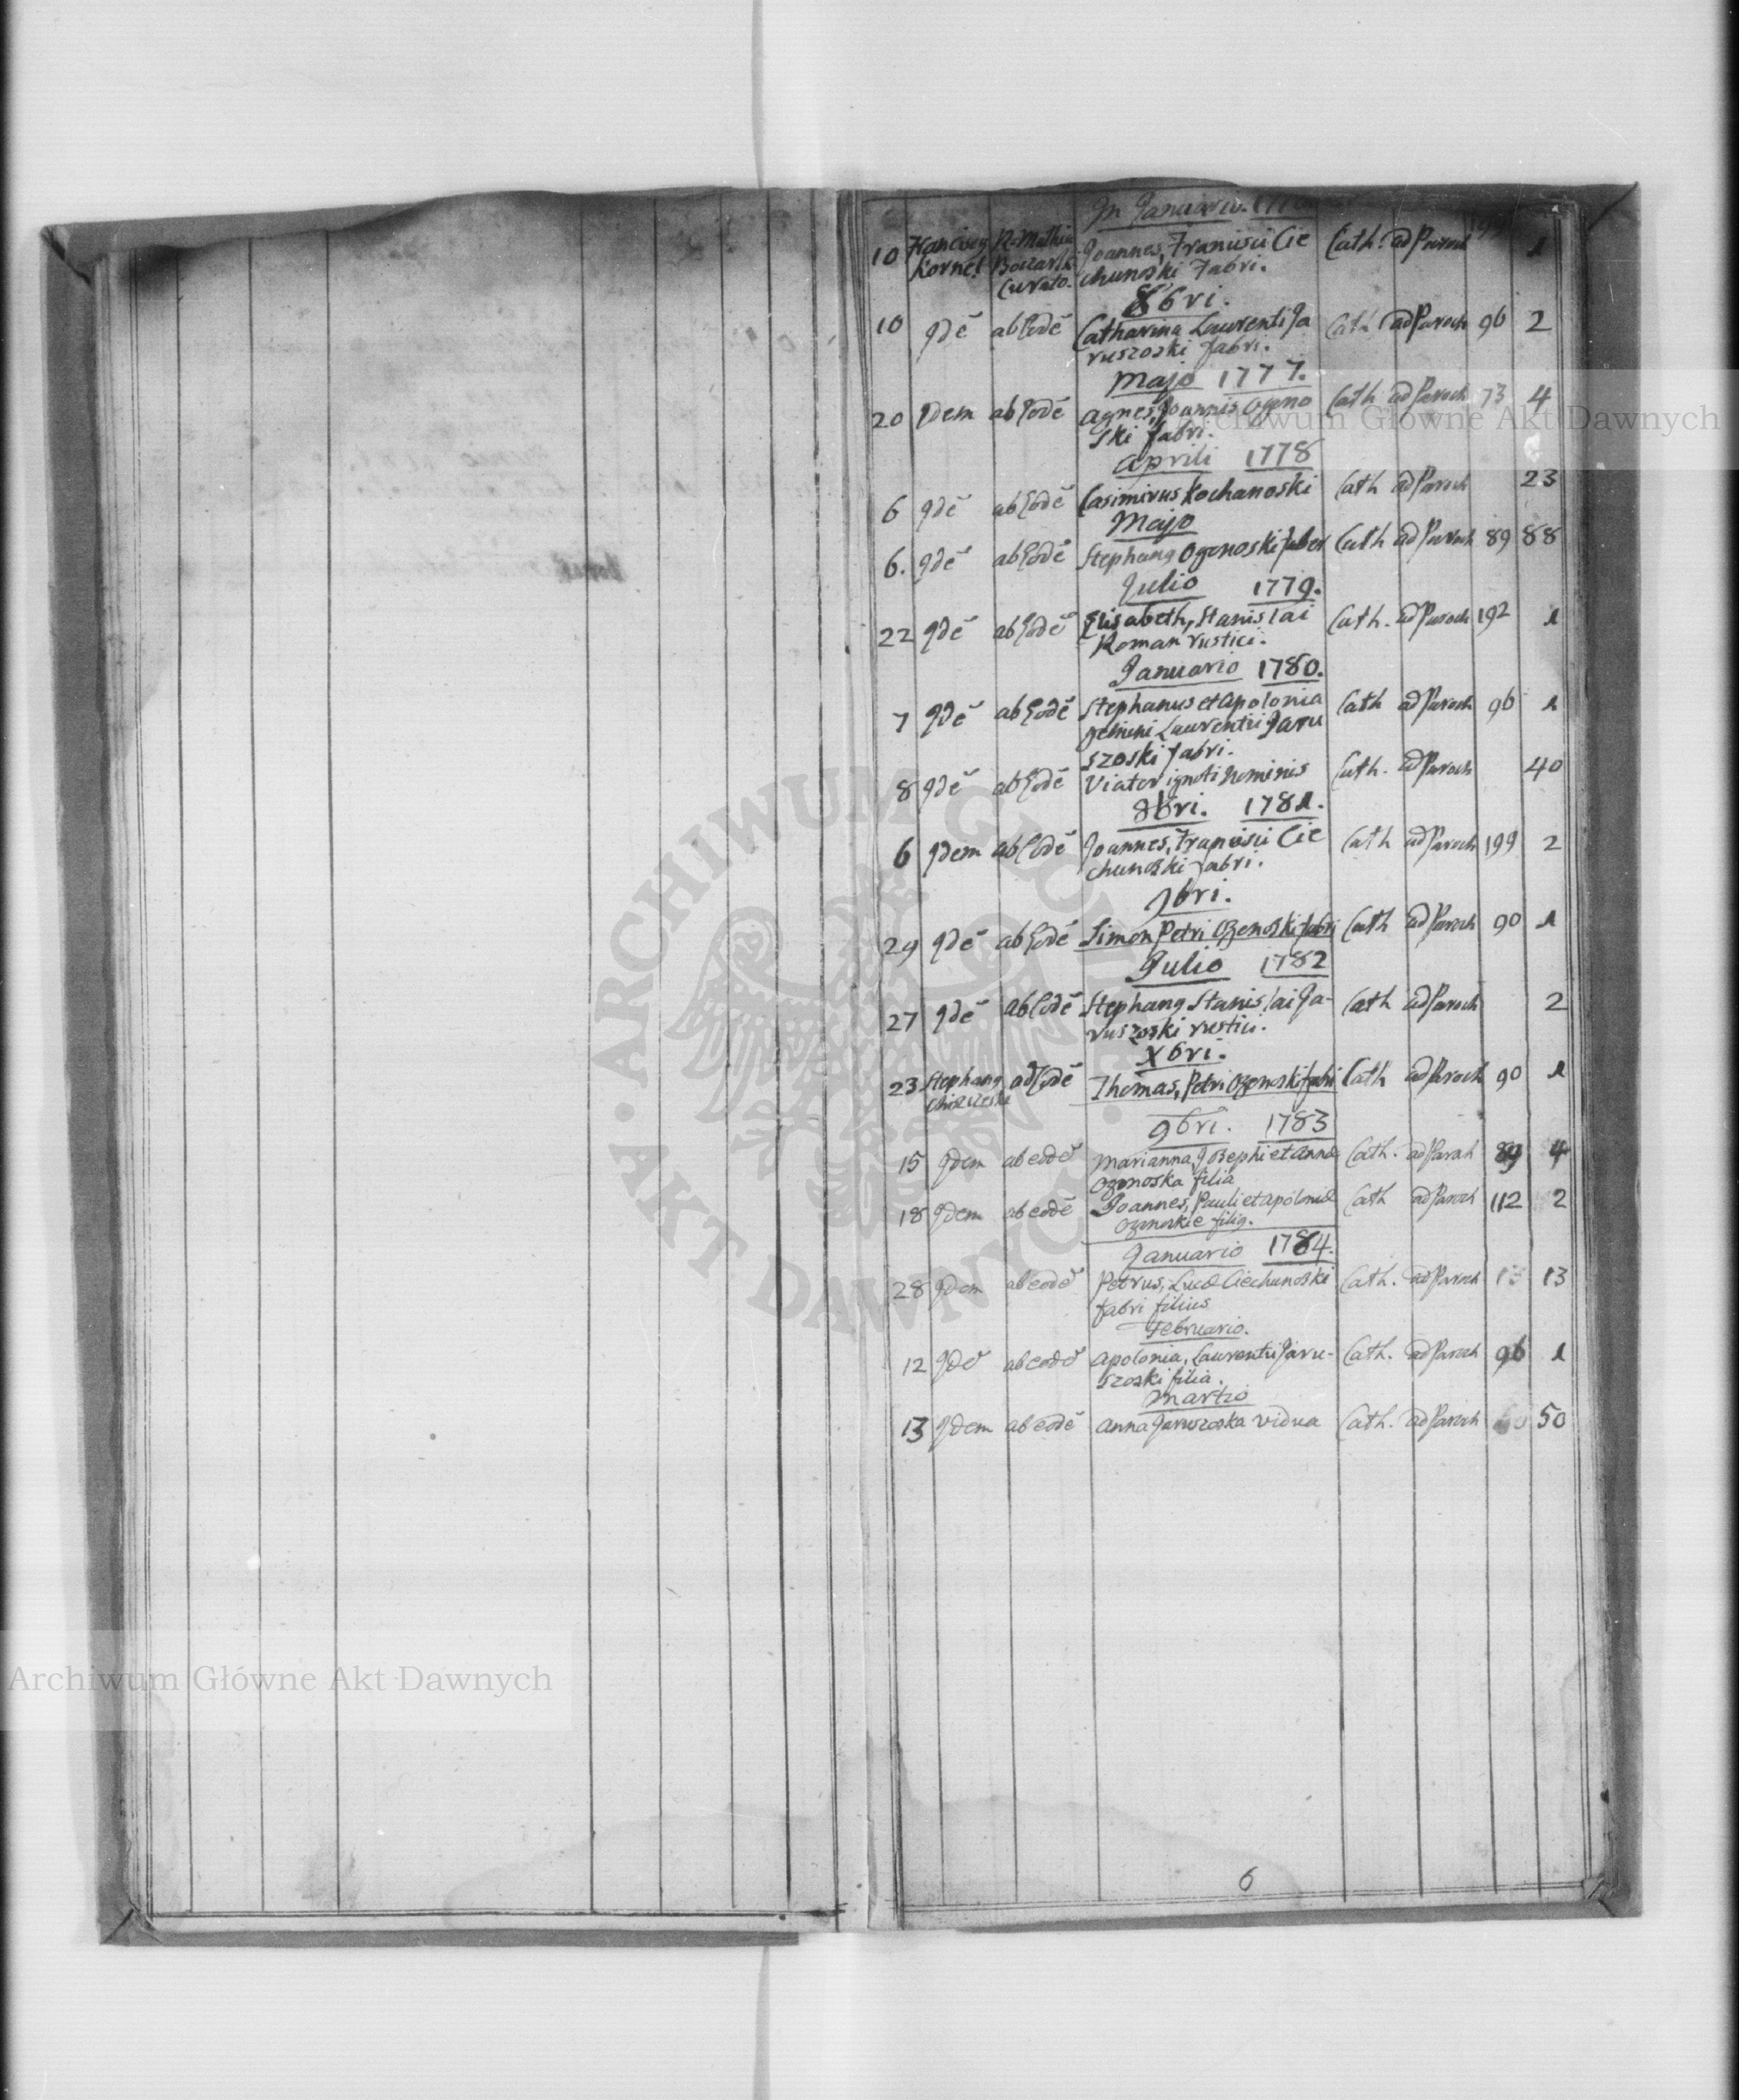 In Januario.
10 Franciscg R. Mathia Joannes, Francisci Cie Cath. ad Paroch 1
Kornel Curato. chunoski Fabri.
8bri.
10 Idē ab Eodē Catharina Laurenti Ja Cath ad Paroch 96 2
ruszoski fabri.
Majo 1777.
20 Idem ab Eodē Agnes, Joannis Ozeno Cath ad Paroch 73 4
ski fabri.
Aprili 1778
6 Idē ab Eodē Casimirus Kochanoski Cath ad Paroch 23
Majo
6. Idē ab Eodē Stephang Ozenoski faber Cath ad Paroch 89 88
Julio 1779.
22 Idē ab Eodē Elisabeth, Stanislai Cath. ad Paroch 192 1
Roman rustici.
Januario 1780.
7 Idē ab Eodē Stephanus et Apolonia Cath ad Paroch 96 1
gemini Laurentii Jaru
szoski fabri.
8 Idē ab Eodē Viator ignoti nominis Cath. ad Paroch 40
8bri. 1781.
6 Idem ab Eodē Joannes, Francisci Cie Cath ad Paroch 199 2
chunoski fabri.
9bri.
29 Idē ab Eodē Simon Petri Ozenoski fabri Cath ad Paroch 90 1
Julio 1782
27 Idē ab Eodē Stephang Stanislai Ja- Cath ad Paroch 2
ruszoski rustici.
Xbri.
23 Stephang ab Eodē Thomas, Petri Ozenoski fabri Cath ad Paroch 90 1
9bri. 1783
15 Idem ab eodē Marianna, Josephi et Anna Cath. ad Paroh 89 4
Ozenoska filia
18 Idem ab eodē Joannes, Pauli et Apolonia Cath ad Paroch 112 2
Ozenoskie filig.
Januario 1784.
28 Idem ab eodē Petrus, Luca Ciechunoski Cath. ad Paroch 13 13
fabri filius
Februario.
12 Idē ab eodē Apolonia, Laurentii Jaru- Cath. ad Paroch 96 1
szoski filia.
Martio
13 Idem ab eodē Anna Jaruszoska vidua Cath. ad Paroch 50
6
Archiwum Główne Akt Dawnych
Archiwum Główne Akt Dawnych
ARCHIWUM GŁÓWNE AKT DAWNYCH